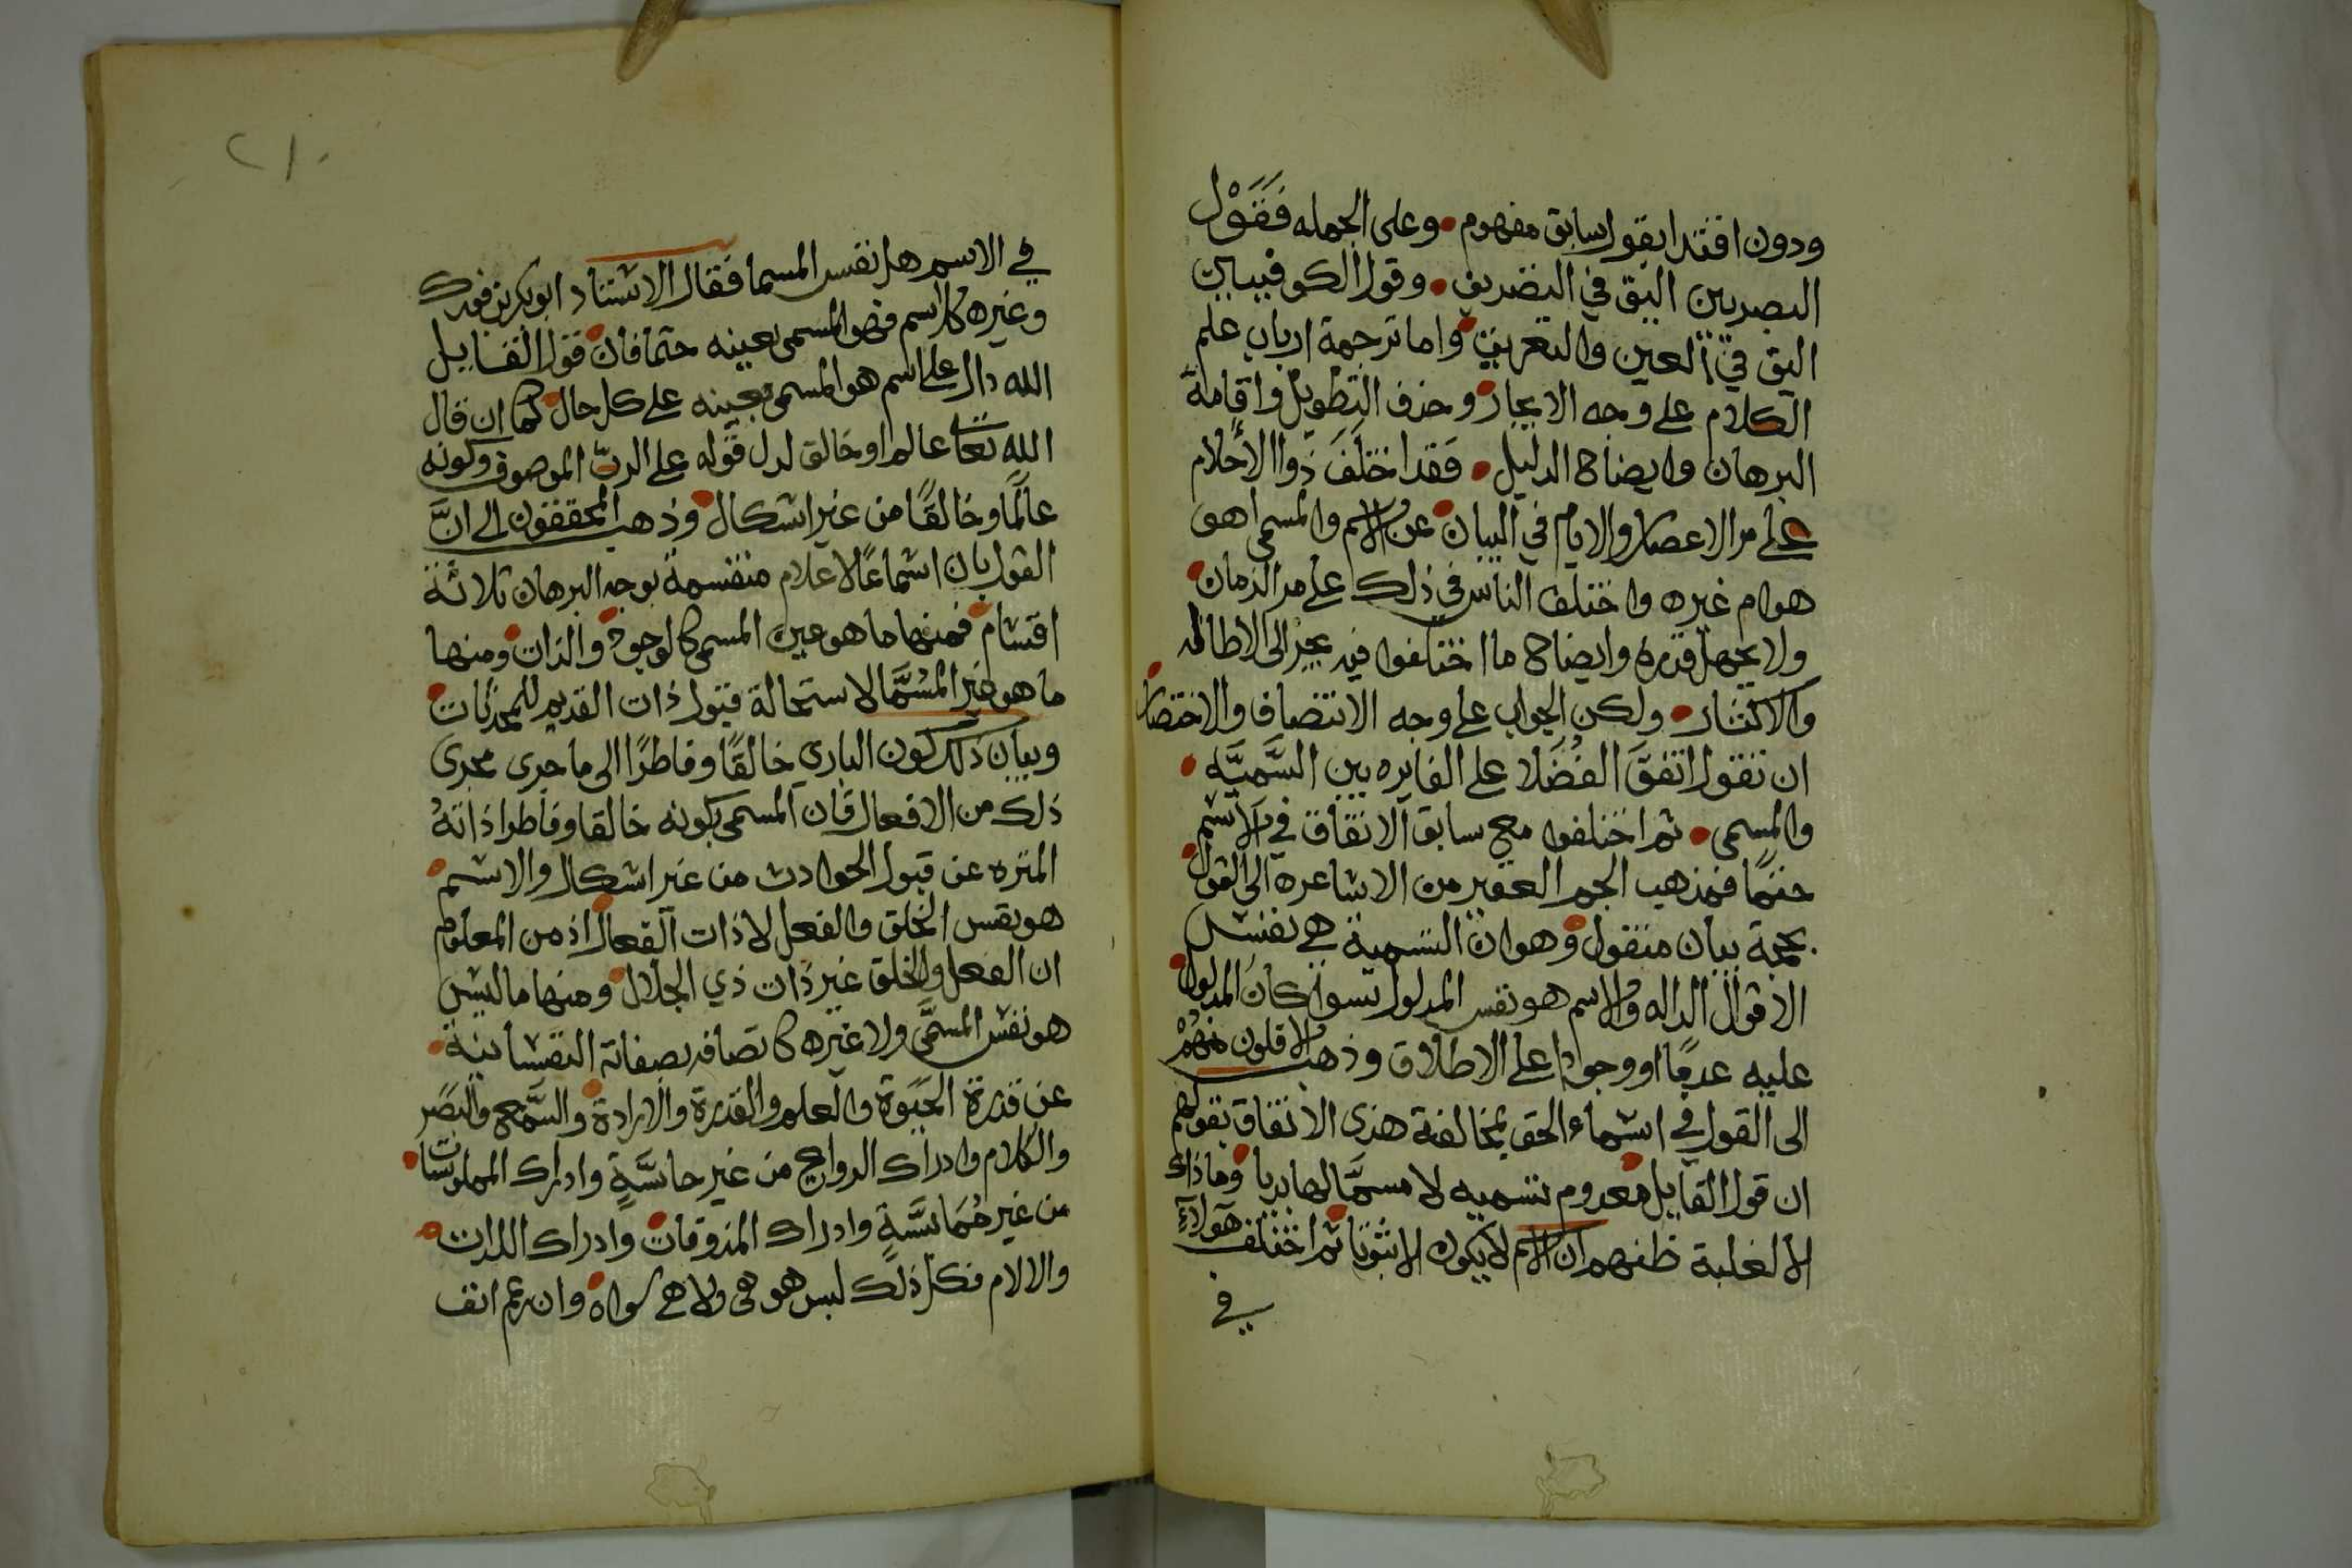 ودون اقتدا بقول سابق مفهوم • وعلى الجمله فَقَوْل
البصريين اليق في التصريف • وقول الكوفييين
اليق في العين والتعريف • واما ترجمة ارباب علم
الكلام على وجه الايجاز • وحذف التطويل واقامة
البرهان وايضاح الدليل • فقد اختلَفَ ذَواا الأحلام
على مر الاعصار والايام في البيان عن الاسم والمسمى اهو
هو ام غيره واختلف الناس في ذلك على مر الزمان •
ولا يجهل قدره وايضاح ما اختلفوا فيه يجر الى الاطالة
والاكثار • ولكن الجواب على وجه الانتصاف والاختصار •
ان نقول اتفقَ الفُضَلا على الغايره بين السَّميَّه •
والمسمى • ثم اختلفوا مع سابق الاتفاق في الاسم •
حتمًا فمذهب الجم الغفير من الاشاعره الى القول
بحجة بيان منقول • وهو ان التسمية هي نفس
الاقوال الداله والاسم هو نفس المدلول سوا كان المدلول •
عليه عدمًا او وجودا على الاطلاق وذهب الاقلون منهُمْ
الى القول في اسماء الحق بمخالفة هذى الاتفاق بقولهم
ان قول القايل معدوم تسميه لا مسمَّا لها بديا • وما ذاك
الا لغلبة ظنهم ان الاسم لا يكون الا ثبوتا ثم اختلف هَولآءِ
في
٢١٠
في الاسم هل نفس المسما فقال الاستاد ابو بكر بن فورك
وغيره كل اسم فهو المسمى بعينه حتما فان • قول القايل
الله دال على اسم هو المسمى بعينه على كل حال • كما ان قال
الله تعالى عالم او خالق لدل قوله على الربّ الموصوف وكونه
عالمًا وخالقًا من غير اشكال • وذهب المحققون الى انَّ
القول بان اسما عًالاعلام منقسمة بوجه البرهان ثلاثة
اقسام • فمنها ما هو عين المسمى كالوجود • والذات • ومنها
ما هو غير المسَمَّا لاستحالة قبول ذات القديم للمحدثات •
وبيان ذلك كون الباري خالقًا وفاطرًا الى ما جرى مجرى
ذلك من الافعال فان المسمى بكونه خالقا وفاطرا ذاتهُ
المنزه عن قبول الحوادث من غير اشكال والاسم •
هو نفس الخلق والفعل لا ذات الفعال • اذ من المعلوم
ان الفعل والخلق غير ذات ذي الجلال • ومنها ما ليس
هو نفس المسمَّى ولا غيره كاتصافه بصفاته النفسانية •
عن قدرة الحَيَوة والعلم والقدرة والارادة • والسَّمع والبصَر
والكلام وادراك الروايح من غير حاسَّةٍ وادراك الملموسات •
من غير مُمَاسَّةٍ وادراك المذوقات • وادراك اللذات •
والالام فكل ذلك ليس هو هى ولا هي سواه • وان رغم انف